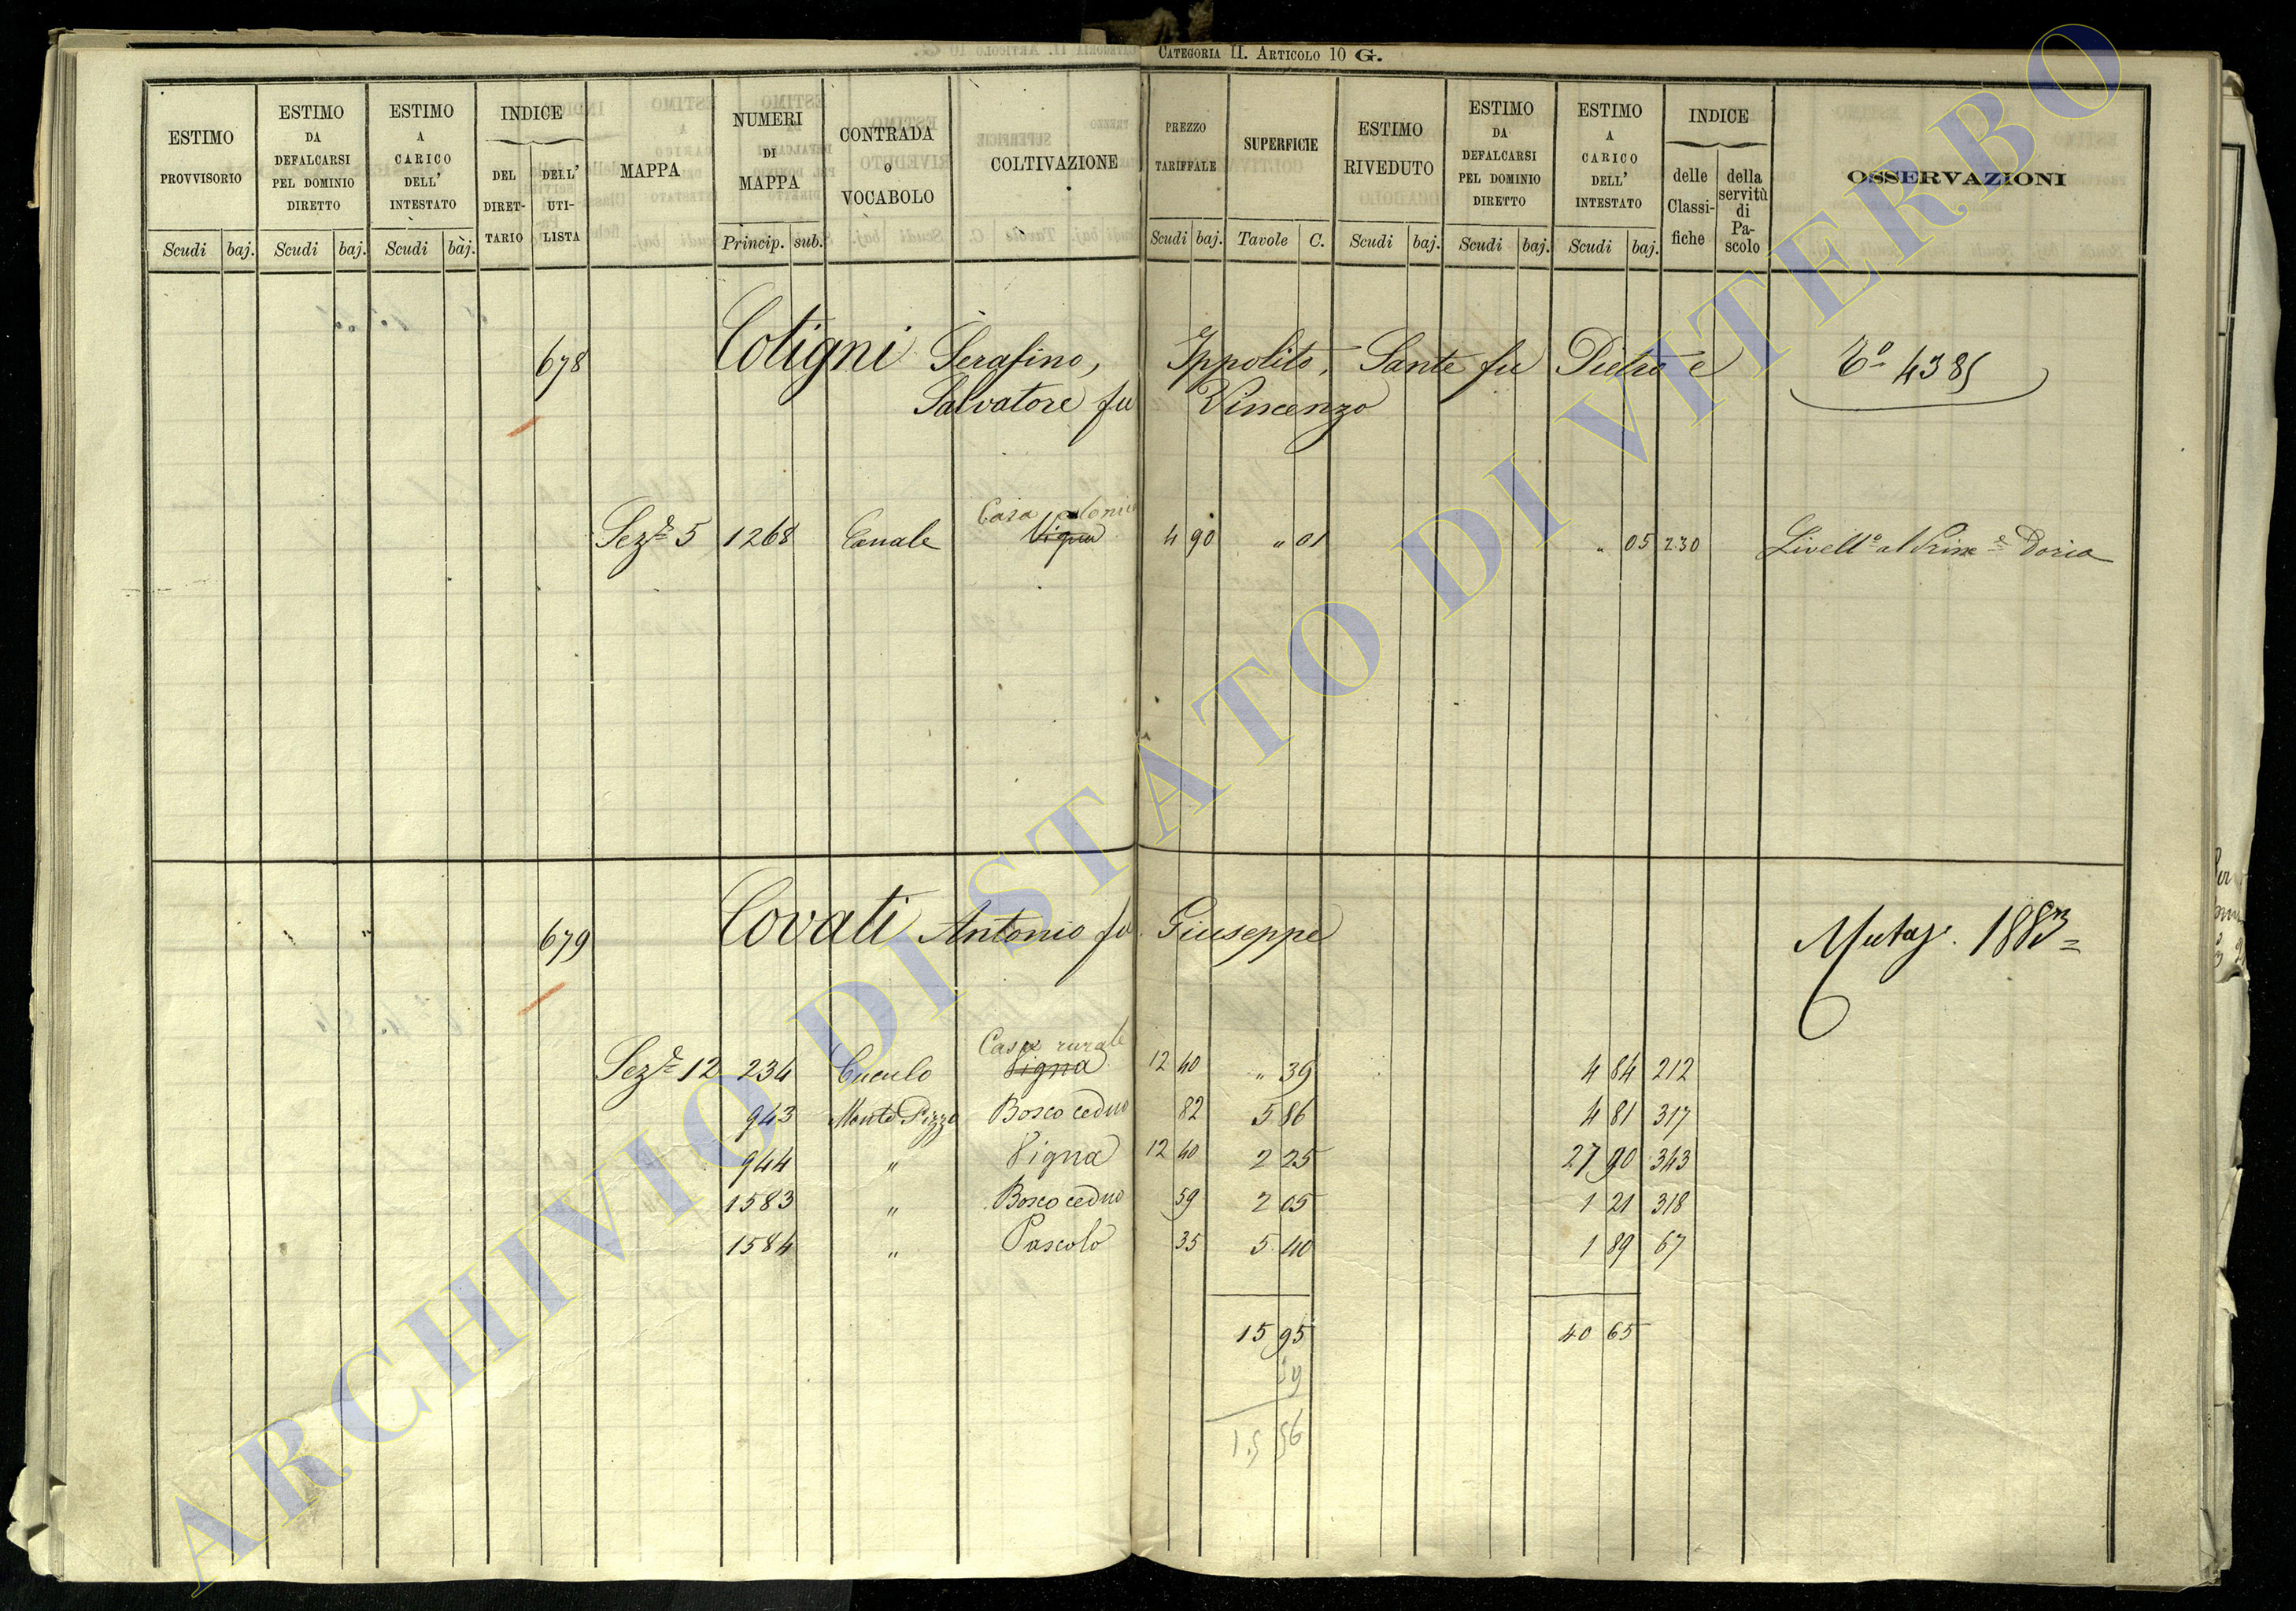 CATEGORIA II. ARTICOLO 10 G.
ESTIMO PROVVISORIO
ESTIMO DA DEFALCARSI PEL DOMINIO DIRETTO
ESTIMO A CARICO DELL' INTESTATO
INDICE
DEL DIRETTARIO
DELL' UTILISTA
MAPPA
NUMERI DI MAPPA
CONTRADA O VOCABOLO
COLTIVAZIONE
PREZZO TARIFFALE
SUPERFICIE
ESTIMO RIVEDUTO
ESTIMO DA DEFALCARSI PEL DOMINIO DIRETTO
ESTIMO A CARICO DELL' INTESTATO
INDICE
delle Classifiche
della servitù di Pascolo
OSSERVAZIONI
Scudi baj. Scudi baj. Scudi baj. Princip. sub. Scudi baj. Tavole C. Scudi baj. Scudi baj. Scudi baj.
678 Cotigni Serafino, Ippolito, Sante fu Pietro e
Salvatore fu Vincenzo
Casa colonica
Sez.e 5 1268 Canale Vigna 4 90 " 01 " 05 230 Livell.o al Prin.e Doria
679 Covati Antonio fu Giuseppe
Casa rurale
Sez.e 12 234 Cuculo Vigna 12 40 " 39 4 84 212
943 Monte Pizzo Bosco ceduo 82 5 86 4 81 317
944 " Vigna 12 40 2 25 27 90 343
1583 " Bosco ceduo 59 2 05 1 21 318
1584 " Pascolo 35 5 40 1 89 67
15 95 40 65
15 56
ARCHIVIO DI STATO DI VITERBO